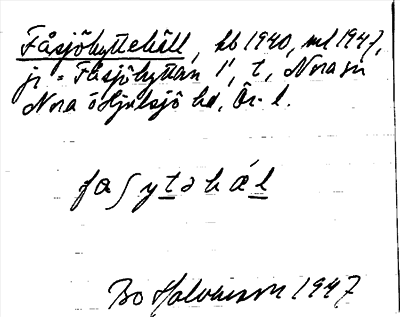 Fåsjöhyttehäll, hb 1940, ml 1947,
jr = Fåsjöhyttan 1', t, Nora sn
Nora o Hjulsjö hd, Ör. l.
faʃytəhǽl
Bo Halvarsson 1947